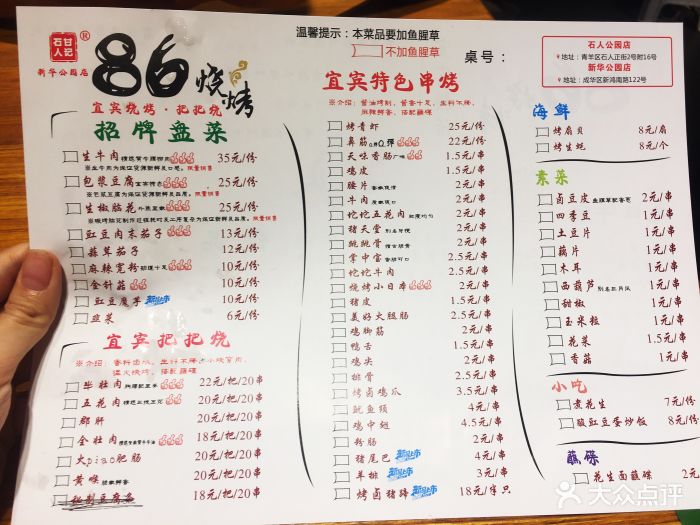 石人
甘记
®
新华公园店
86烧烤
宜宾烧烤·把把烧
温馨提示：本菜品要加鱼腥草
不加鱼腥草
桌号：
石人公园店
地址：青羊区石人正街2号附16号
新华公园店
地址：成华区新鸿南路122号
招牌盘菜
生牛肉 35元/份
包浆豆腐 25元/份
生椒脑花 25元/份
豇豆肉末茄子 13元/份
蒜茸茄子 12元/份
麻辣宽粉 10元/份
金针菇 10元/份
豇豆魔芋 新品上市 10元/份
韭菜 6元/份
宜宾把把烧
牛牡肉 22元/把/20串
五花肉 20元/把/20串
郡肝 20元/把/20串
金牡肉 18元/把/20串
大piao肥肠 20元/把/20串
黄喉 20元/把/20串
秘制豆腐条 18元/把/20串
宜宾特色串烤
烤青虾 25元/份
鼻筋 22元/份
天味香肠 1.5元/串
鸡皮 1.5元/串
腰片 2元/串
牛肉 2元/串
坨坨五花肉 2元/串
猪天堂 2元/串
跳跳骨 2元/串
掌中宝 2元/串
坨坨牛肉 2.5元/串
烧烤小日本 2元/串
猪皮 1.5元/串
美好火腿肠 2.5元/串
鸡脚筋 2元/串
鸭舌 5元/串
鸡尖 2元/串
排骨 2.5元/串
烤卤鸡爪 3.5元/串
鱿鱼须 4元/串
鸡中翅 4元/串
粉肠 2元/串
猪尾巴 新品上市 4元/串
羊排 新品上市 3元/串
烤卤猪蹄 新品上市 18元/半只
海鲜
烤扇贝 8元/扇
烤生蚝 8元/个
素菜
卤豆皮 2元/串
四季豆 1元/串
土豆片 1元/串
藕片 1元/串
木耳 1元/串
西葫芦 1元/串
甜椒 1元/串
玉米粒 1元/串
花菜 1.5元/串
香菇 1元/串
小吃
煮花生 7元/份
酸豇豆蛋炒饭 8元/份
蘸碟
花生面蘸碟 2元/份
大众点评